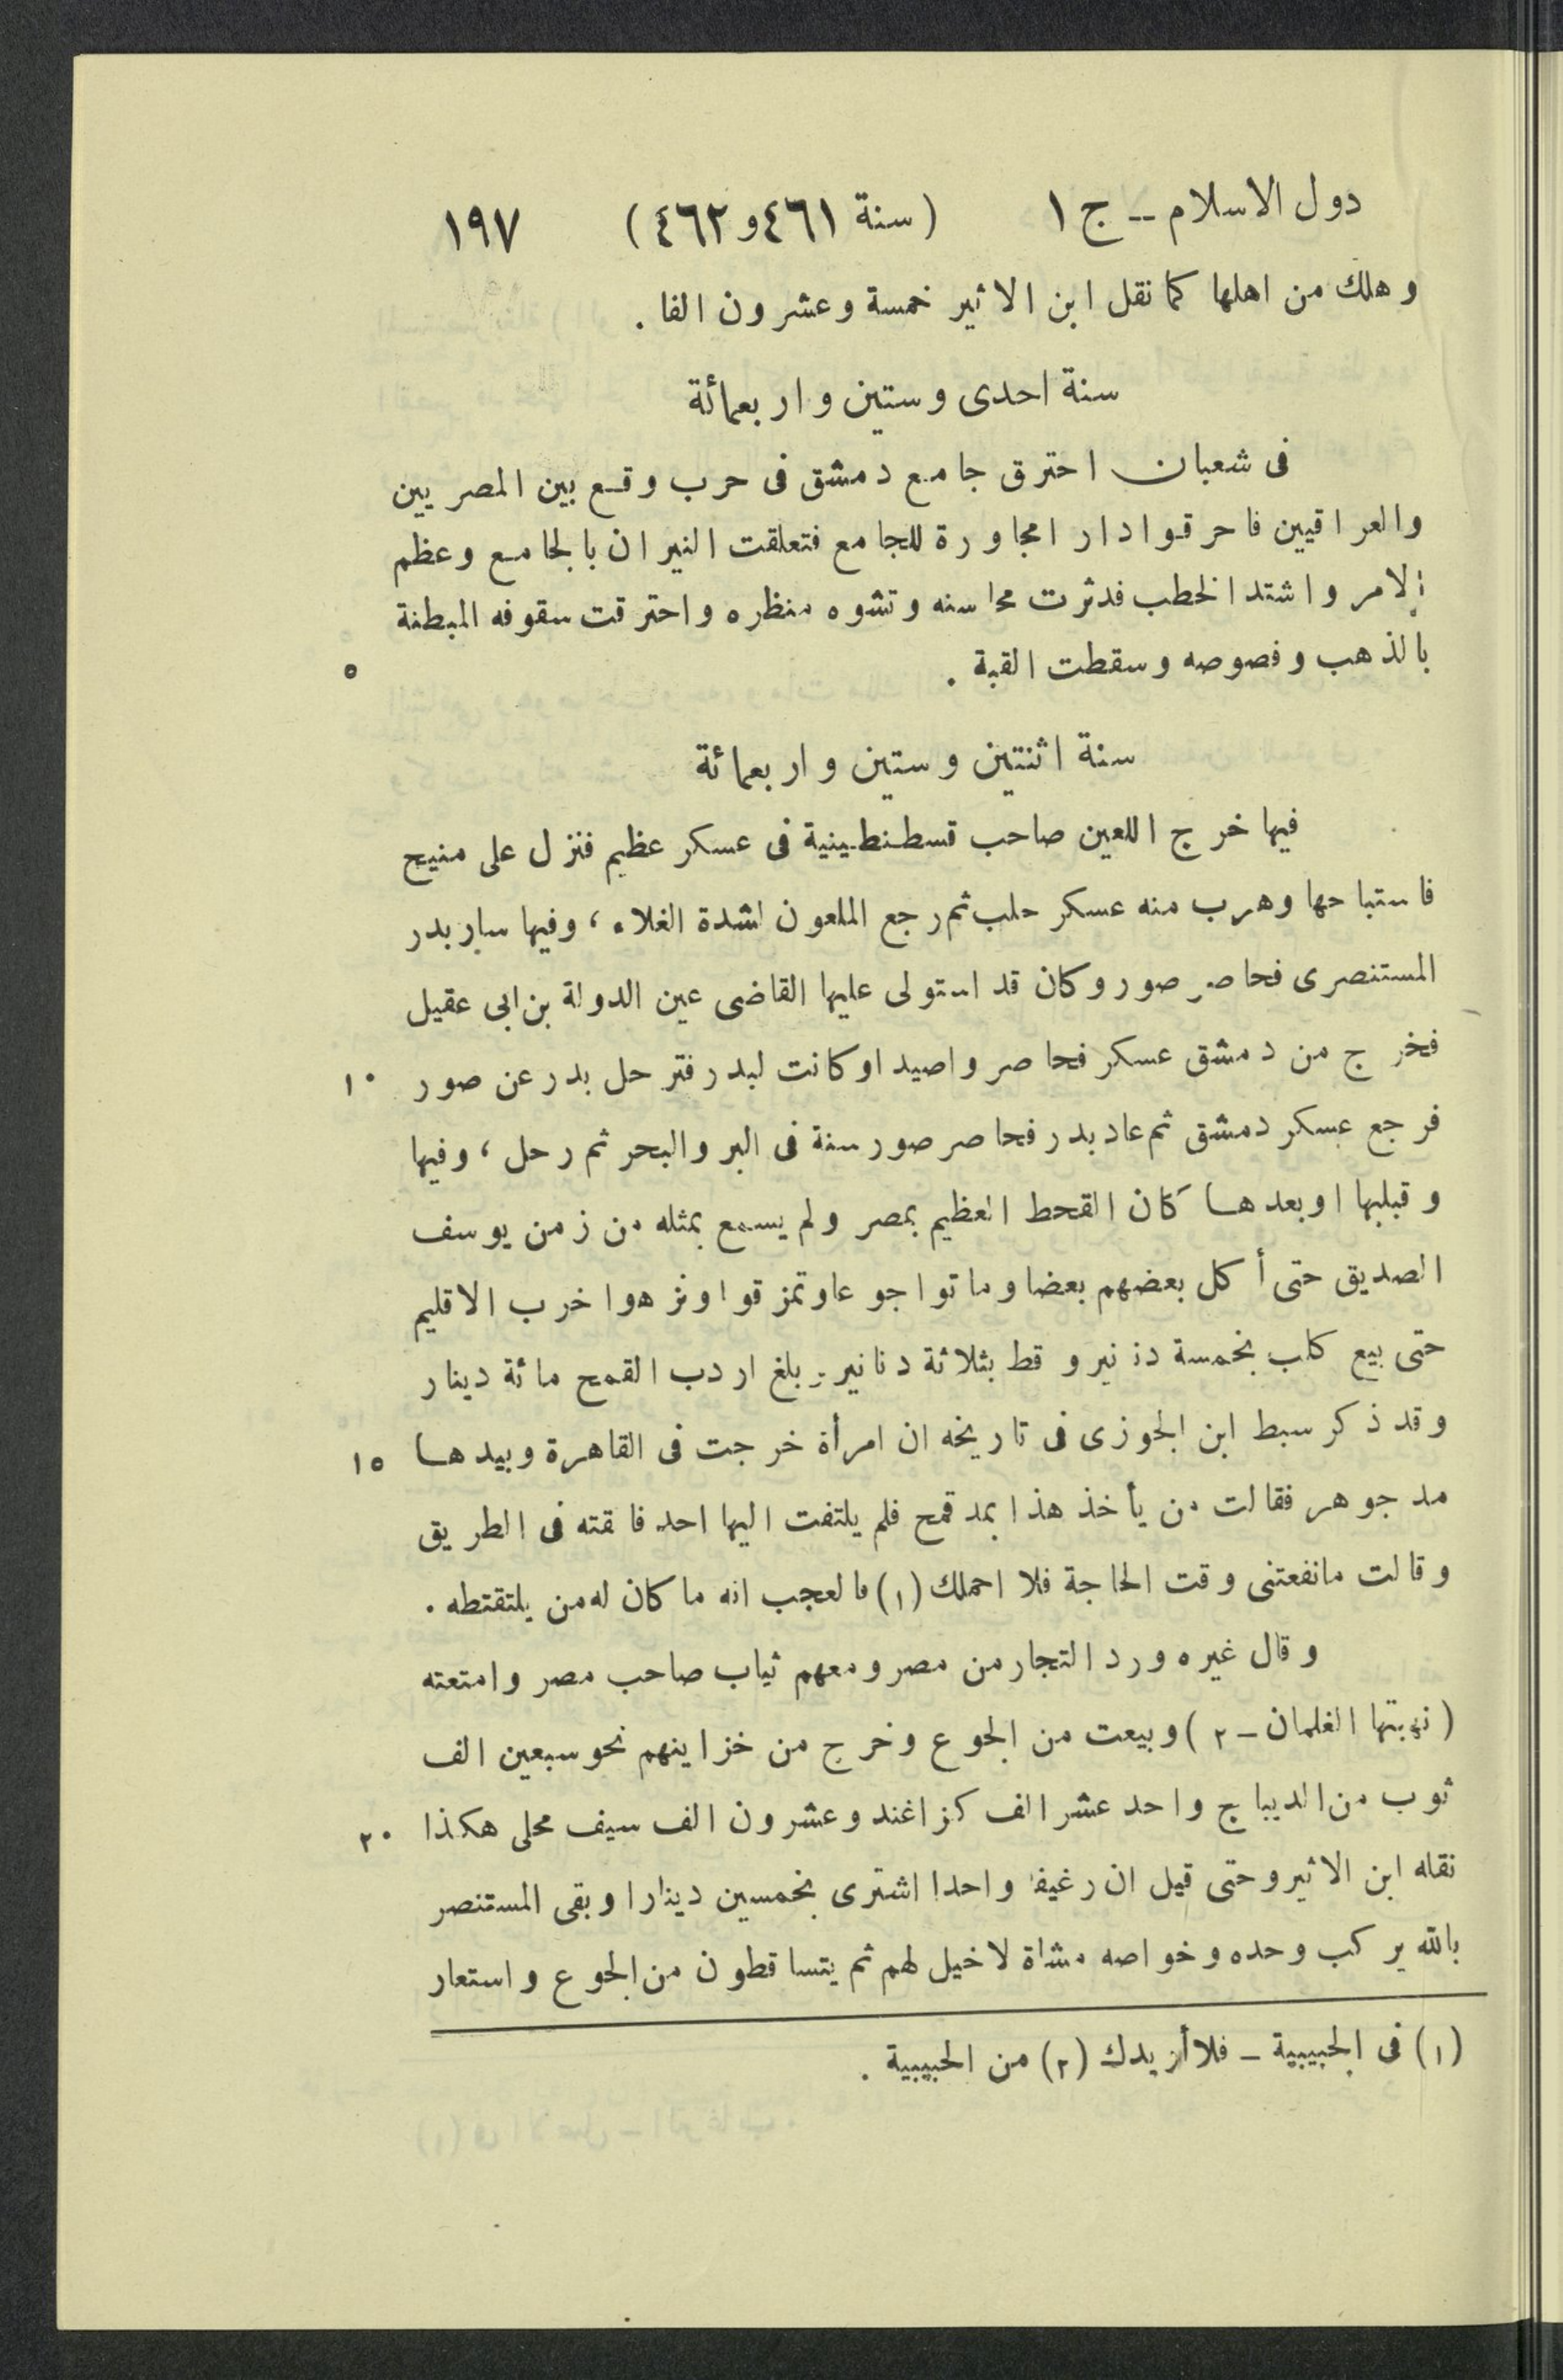 دول الاسلام -- ج ١ (سنة ٤٦١ و ٤٦٢) ١٩٧
وهلك من اهلها كما نقل ابن الاثير خمسة وعشرون الفا .
سنة احدى وستين واربعمائة
فى شعبان احترق جامع دمشق فى حرب وقع بين المصريين
والعراقيين فاحرقوا دارا مجاورة للجامع فتعلقت النيران بالجامع وعظم
الامر واشتد الخطب فدثرت محاسنه وتشوه منظره واحترقت سقوفه المبطنة
بالذهب وفصوصه وسقطت القبة . ٥
سنة اثنتين وستين واربعمائة
فيها خرج اللعين صاحب قسطنطينية فى عسكر عظيم فنزل على منيح
فاستباحها وهرب منه عسكر حلب ثم رجع الملعون لشدة الغلاء ، وفيها سار بدر
المستنصرى فحاصر صور وكان قد استولى عليها القاضى عين الدولة بن ابى عقيل
فخرج من دمشق عسكر فحاصروا صيدا وكانت لبدر فترحل بدر عن صور ١٠
فرجع عسكر دمشق ثم عاد بدر فحاصر صور سنة فى البر والبحر ثم رحل ، وفيها
وقبلها اوبعدها كان القحط العظيم بمصر ولم يسمع بمثله من زمن يوسف
الصديق حتى أكل بعضهم بعضا وماتوا جوعا وتمزقوا ونزهوا خرب الاقليم
حتى بيع كلب بخمسة دنانير وقط بثلاثة دنانير وبلغ اردب القمح مائة دينار
وقد ذكر سبط ابن الجوزى فى تاريخه ان امرأة خرجت فى القاهرة وبيدها ١٥
مد جوهر فقالت من يأخذ هذا بمد قمح فلم يلتفت اليها احد فالقته فى الطريق
وقالت مانفعتنى وقت الحاجة فلا احملك (١) فالعجب انه ما كان له من يلتقتطه .
وقال غيره ورد التجار من مصر ومعهم ثياب صاحب مصر وامتعته
(نهبتها الغلمان - ٢) وبيعت من الجوع وخرج من خزاينهم نحو سبعين الف
ثوب من الديباج واحد عشر الف كزاغند وعشرون الف سيف محلى هكذا ٢٠
نقله ابن الاثير وحتى قيل ان رغيفا واحدا اشترى بخمسين دينارا وبقى المستنصر
بالله يركب وحده وخواصه مشاة لا خيل لهم ثم يتساقطون من الجوع واستعار
(١) فى الحبيبية - فلا أريدك (٢) من الحبيبية .